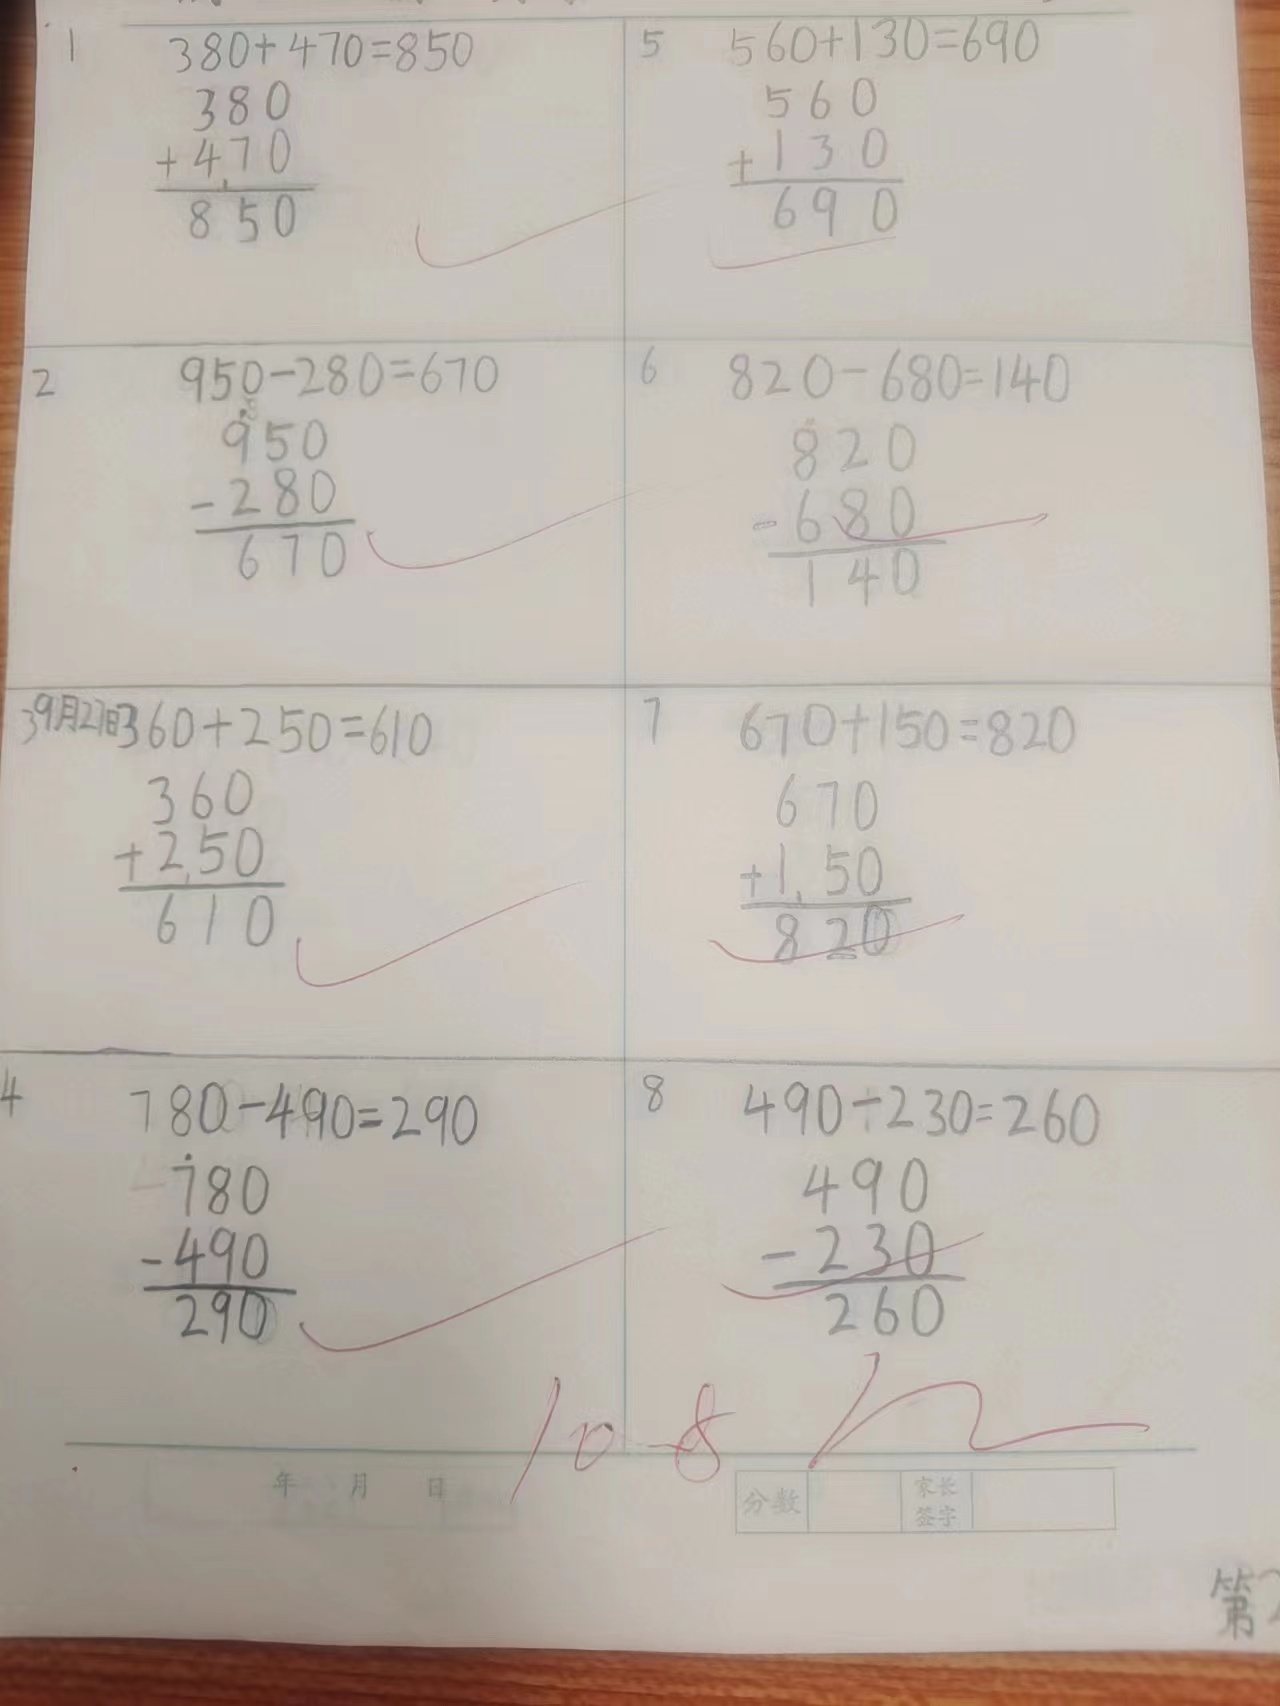 1
380+470=850
380
+470
850
5
560+130=690
560
+130
690
2
950-280=670
950
-280
670
6
820-680=140
820
-680
140
3 9月27日 360+250=610
360
+250
610
7
670+150=820
670
+150
820
4
780-490=290
780
-490
290
8
490-230=260
490
-230
260
10-8
年 月 日
分数 家长签字
第